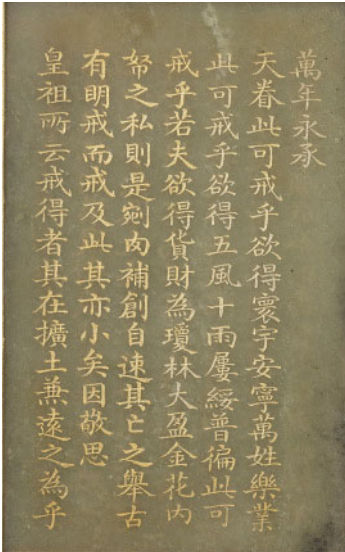 萬年永承
天眷此可戒乎欲得寰宇安寧萬姓樂業
此可戒乎欲得五風十雨屢綏普徧此可
戒乎若夫欲得貨財為瓊林大盈金花內
帑之私則是剜肉補創自速其亡之舉古
有明戒而戒及此其亦小矣因敬思
皇祖所云戒得者其在擴土兼遠之為乎